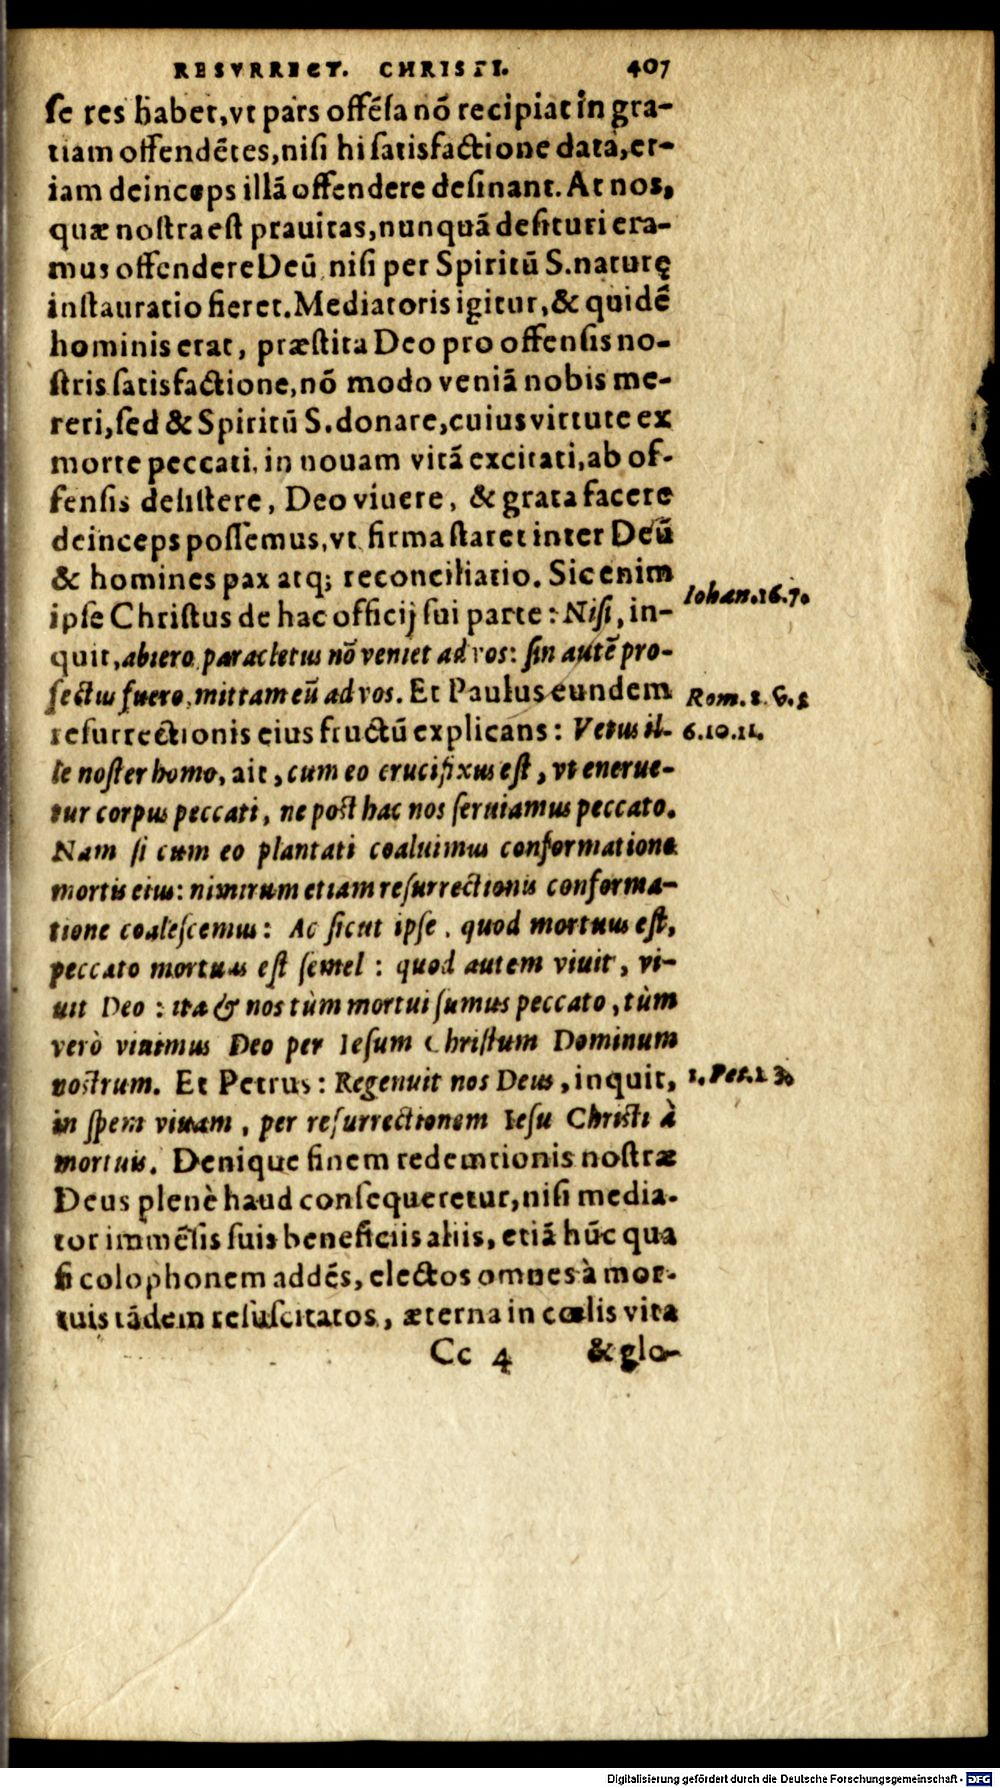 RESVRRECT. CHRISTI. 407
se res habet, vt pars offẽsa nõ recipiat in gra-
tiam offendẽtes, nisi hi satisfactione data, et-
iam deinceps illã offendere desinant. At nos,
quæ nostra est prauitas, nunquã desituri era-
mus offendere Deũ nisi per Spiritũ S. naturę
instauratio fieret. Mediatoris igitur, & quidẽ
hominis erat, præstita Deo pro offensis no-
stris satisfactione, nõ modo veniã nobis me-
reri, sed & Spiritũ S. donare, cuius virtute ex
morte peccati, in nouam vitã excitati, ab of-
fensis desistere, Deo viuere, & grata facere
deinceps possemus, vt firma staret inter Deũ
& homines pax atq; reconciliatio. Sic enim
ipse Christus de hac officij sui parte: Nisi, in-
Iohan. 16.7.
quit, abiero, paracletus nõ veniet ad vos: sin autẽ pro-
fectus fuero, mittam eũ ad vos. Et Paulus eundem
Rom. 8. 6.5
resurrectionis eius fructũ explicans: Vetus il-
6.10.11.
le noster homo, ait, cum eo crucifixus est, vt enerue-
tur corpus peccati, ne post hac nos seruiamus peccato.
Nam si cum eo plantati coaluimus conformatione
mortis eius: nimirum etiam resurrectionis conforma-
tione coalescemus: Ac sicut ipse, quod mortuus est,
peccato mortuus est semel: quod autem viuit, vi-
uit Deo: ita & nos tùm mortui sumus peccato, tùm
verò viuimus Deo per Iesum Christum Dominum
nostrum. Et Petrus: Regenuit nos Deus, inquit,
1. Pet. 1 3.
in spem viuam, per resurrectionem Iesu Christi à
mortuis. Denique finem redemtionis nostræ
Deus plenè haud consequeretur, nisi media-
tor immẽsis suis beneficiis aliis, etiã hũc qua
si colophonem addẽs, electos omnes à mor-
tuis tãdem resuscitatos, æterna in cœlis vita
Cc 4 & glo-
Digitalisierung gefördert durch die Deutsche Forschungsgemeinschaft - DFG